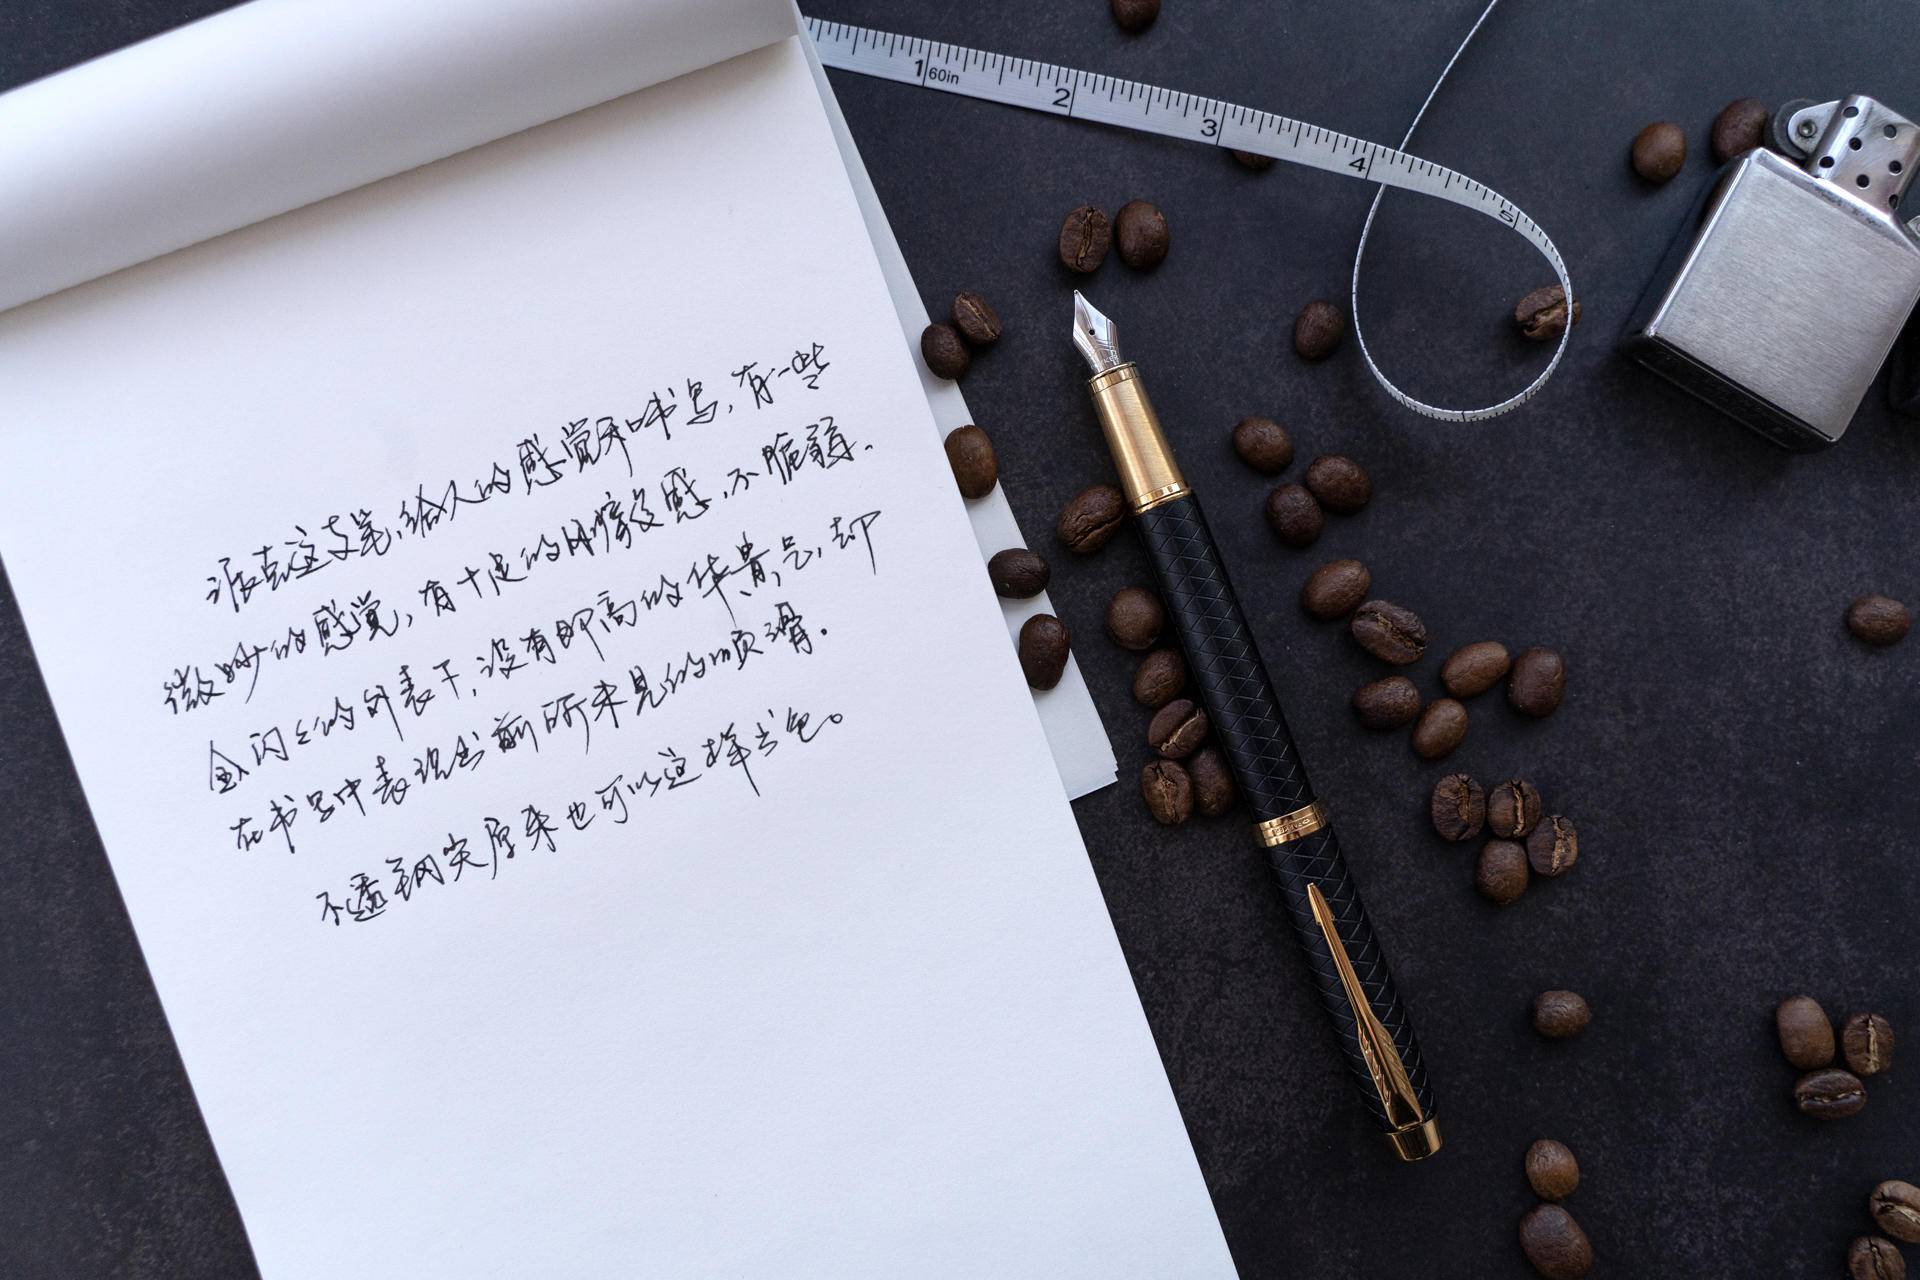 派克这支笔,给人的感觉和书写,有一些
微妙的感觉,有十足的阻尼感,不脆弱.
金闪闪的外表下,没有即高的华贵气,却
在书写中表现出前所未见的顺滑.
不透钢尖原来也可以这样出色。
1 60in
2
3
4
5
PARKER